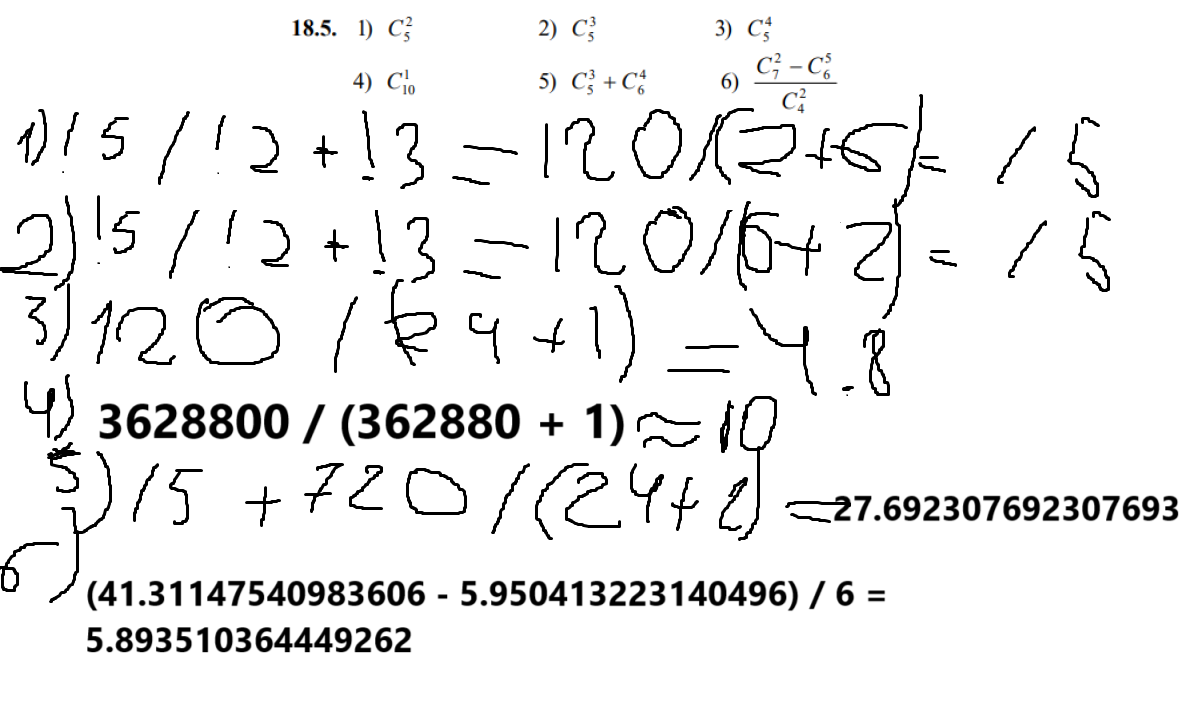 18.5. 1) C₅² 2) C₅³ 3) C₅⁴
4) C₁₀¹ 5) C₅³ + C₆⁴ 6) (C₇² – C₆⁵) / C₄²
1) !5 / !2 + !3 = 120/(2+6) = 15
2) !5 / !2 + !3 = 120/(6+2) = 15
3) 120 / (24+1) = 4.8
4) 3628800 / (362880 + 1) ≈ 10
5) 15 + 720 / (24+2) = 27.692307692307693
6) (41.31147540983606 - 5.950413223140496) / 6 =
5.893510364449262